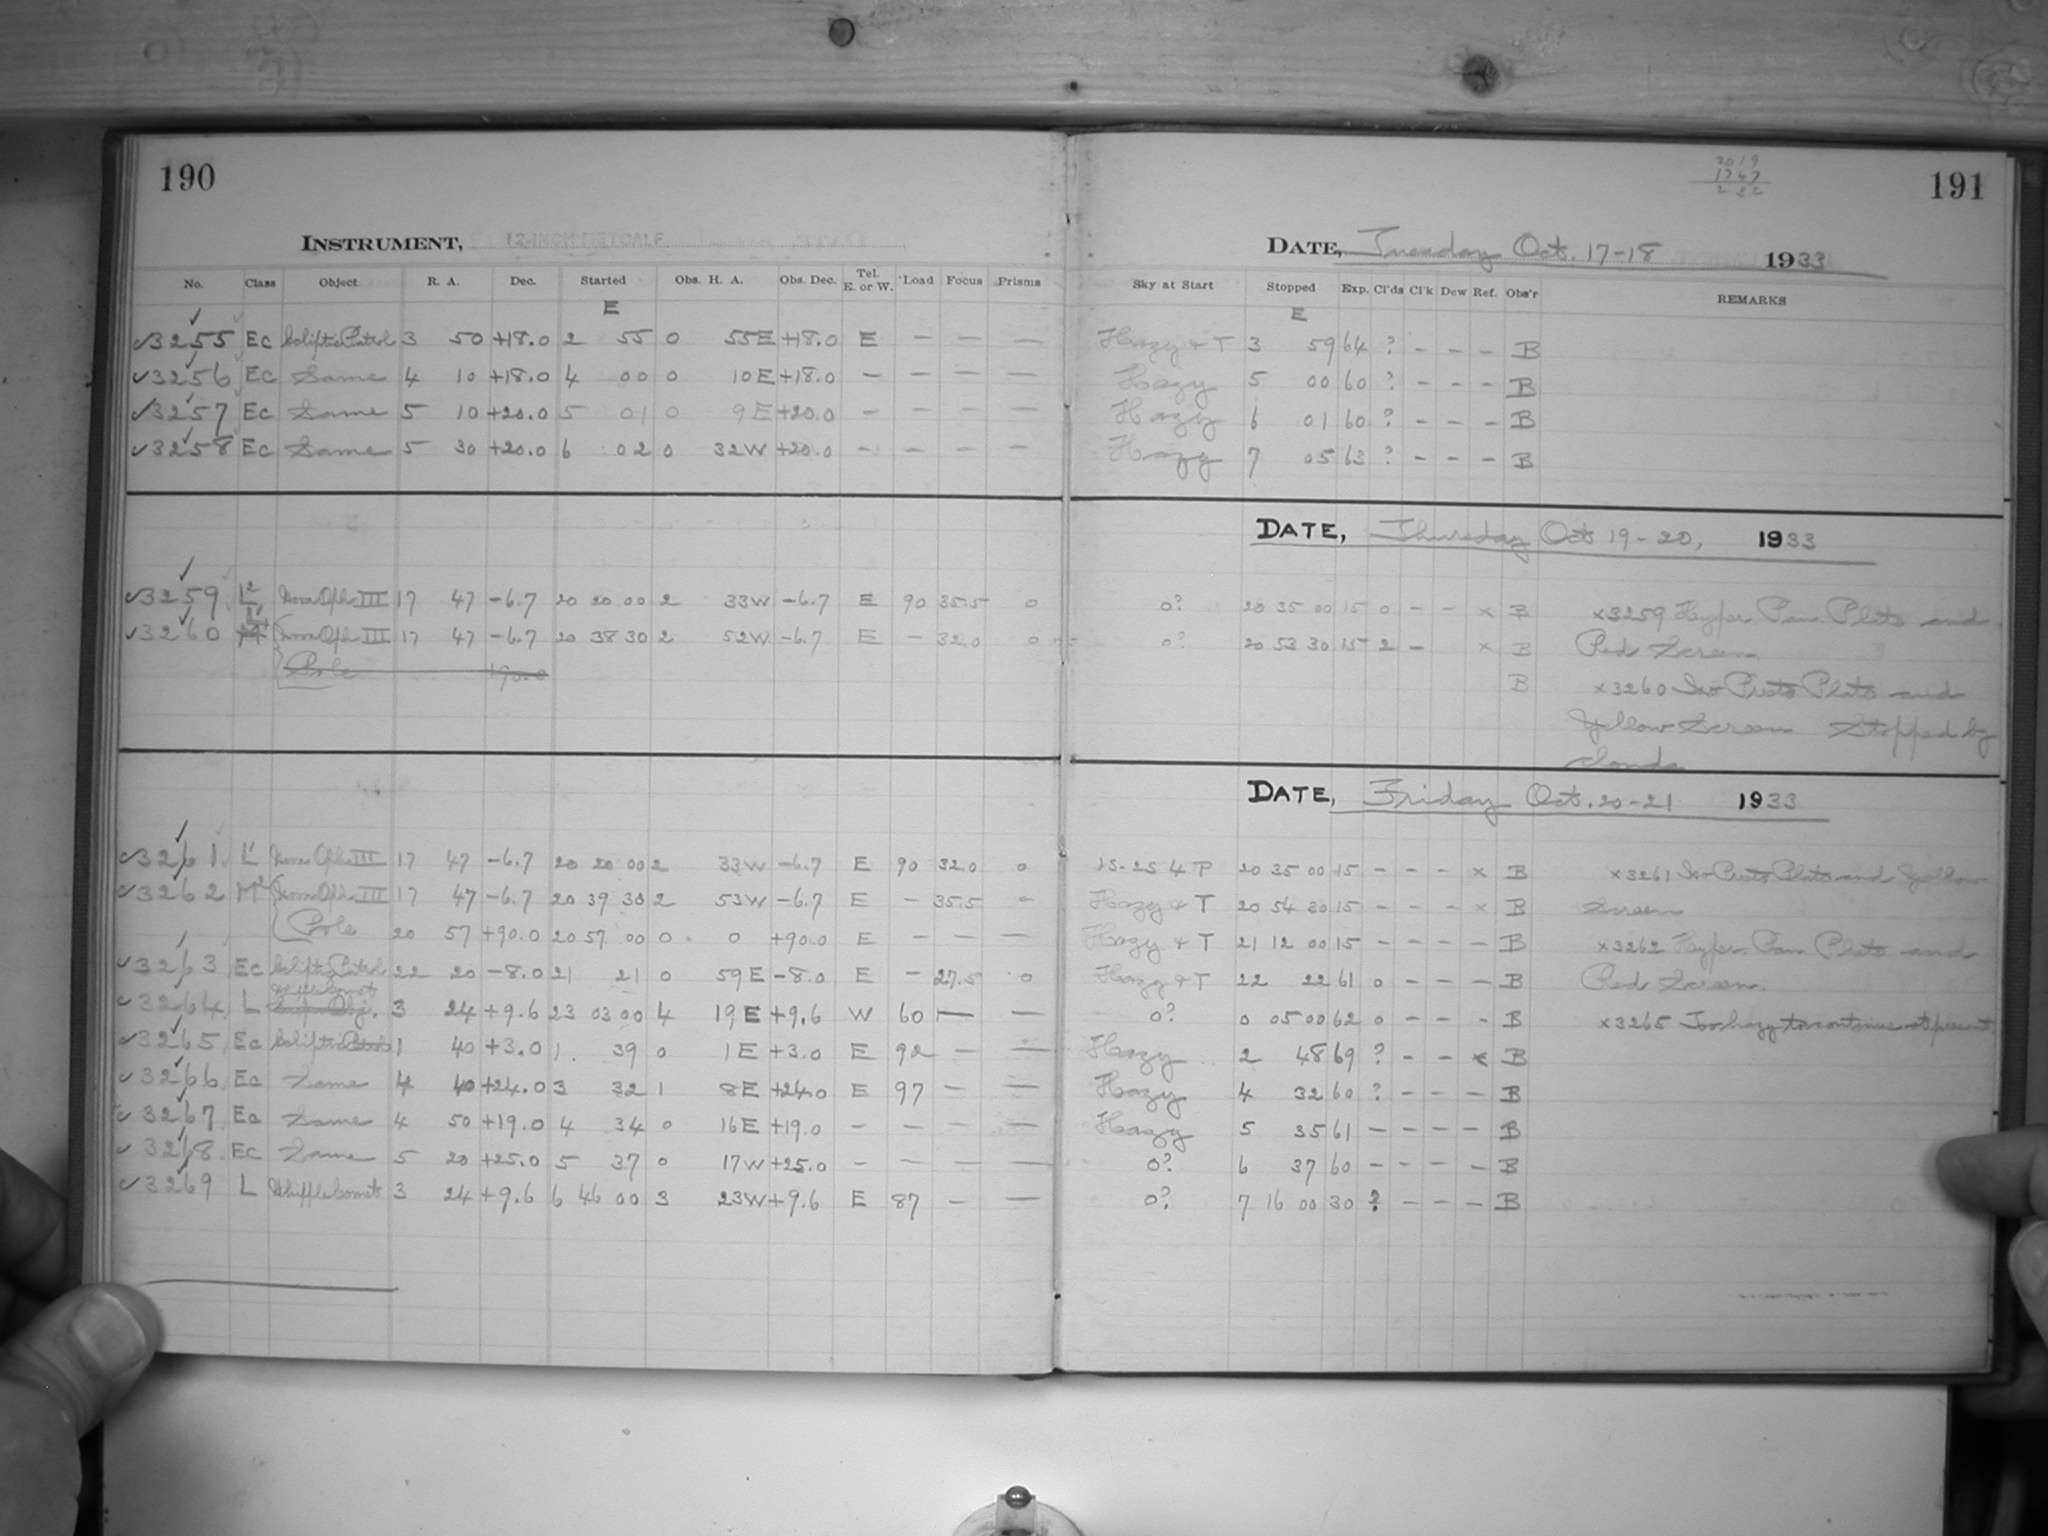 190
INSTRUMENT, 12-INCH METCALF
No. Class Object R. A. Dec. Started Obs. H. A. Obs. Dec. Tel. E. or W. Load Focus Prisms
E
3255 Ec Ecliptic Patrol 3 50 +18.0 2 55 0 55E +18.0 E — — —
3256 Ec Same 4 10 +18.0 4 00 0 10E +18.0 — — — —
3257 Ec Same 5 10 +20.0 5 01 0 9E +20.0 — — — —
3258 Ec Same 5 30 +20.0 6 02 0 32W +20.0 — — — —
3259 L2 Nova Oph III 17 47 -6.7 20 20 00 2 33W -6.7 E 90 35.5 0
3260 Nova Oph III 17 47 -6.7 20 38 30 2 52W -6.7 E — 32.0 0
Pole +90.0
3261 L' Nova Oph III 17 47 -6.7 20 20 00 2 33W -6.7 E 90 32.0 0
3262 M2 Nova Oph III 17 47 -6.7 20 39 30 2 53W -6.7 E — 35.5 —
Pole 20 57 +90.0 20 57 00 0 0 +90.0 E — — —
3263 Ec Ecliptic Patrol 22 20 -8.0 21 21 0 59E -8.0 E — 27.5 0
Whipple Comet
3264 L 3 24 +9.6 23 03 00 4 19E +9.6 W 60 — —
3265 Ec Ecliptic Patrol 1 40 +3.0 1 39 0 1E +3.0 E 92 — —
3266 Ec Same 4 40 +24.0 3 32 1 8E +24.0 E 97 — —
3267 Ec Same 4 50 +19.0 4 34 0 16E +19.0 — — — —
3268 Ec Same 5 20 +25.0 5 37 0 17W +25.0 — — — —
3269 L Whipple Comet 3 24 +9.6 6 46 00 3 23W +9.6 E 87 — —
2019
1747
232
191
DATE, Tuesday Oct. 17-18 1933
Sky at Start Stopped Exp. Cl'ds Cl'k Dew Ref. Obs'r REMARKS
E
Hazy & T 3 59 64 ? - - - B
Hazy 5 00 60 ? - - - B
Hazy 6 01 60 ? - - - B
Hazy 7 05 63 ? - - - B
DATE, Thursday Oct 19-20, 1933
0? 20 35 00 15 0 - - x B x3259 Hyper Pan Plate and
0? 20 53 30 15 2 - x B Red Screen
B x3260 Iso Presto Plate and
Yellow Screen Stopped by
clouds
DATE, Friday Oct. 20-21 1933
1S-2S 4 P 20 35 00 15 - - - x B x3261 Iso Presto Plate and Yellow
Hazy & T 20 54 30 15 - - - x B Screen
Hazy & T 21 12 00 15 - - - - B x3262 Hyper. Pan Plate and
Hazy & T 22 22 61 0 - - - B Red Screen.
0? 0 05 00 62 0 - - - B x3265 Too hazy to continue at present
Hazy 2 48 69 ? - - x B
Hazy 4 32 60 ? - - - B
Hazy 5 35 61 - - - - B
0? 6 37 60 - - - - B
0? 7 16 00 30 ? - - - B